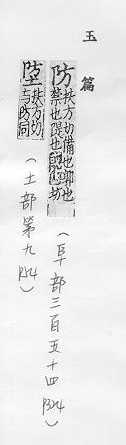 玉篇
防 扶方切備也鄣也
禁也隄也坊
(阜部三百五十四 P324)
埅 扶方切
与防同
(土部第九 P24)